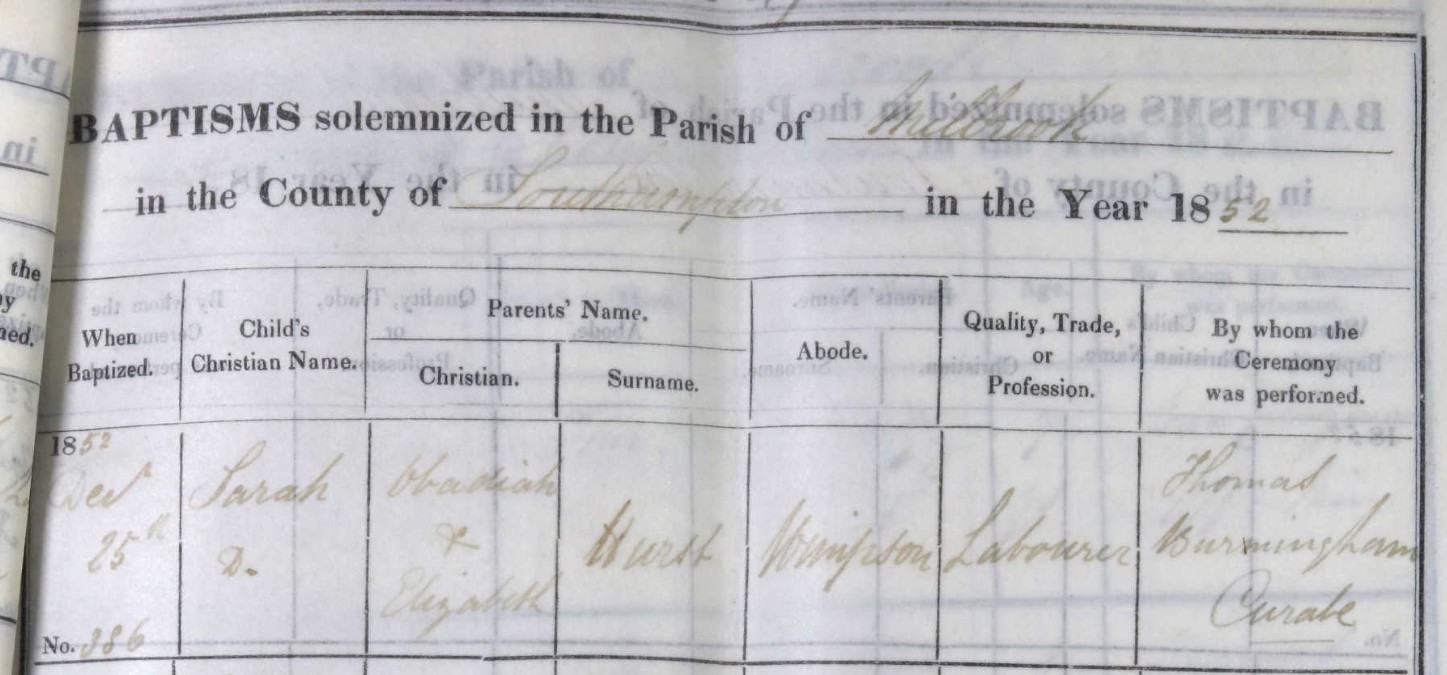 BAPTISMS solemnized in the Parish of Millbrook
in the County of Southampton in the Year 1852
When Baptized.
Child's Christian Name.
Parents' Name.
Christian.
Surname.
Abode.
Quality, Trade, or Profession.
By whom the Ceremony was performed.
1852
Decr
25th
No. 386
Sarah
D.
Obadiah
&
Elizabeth
Hurst
Wimpson
Labourer
Thomas
Burmingham
Curate